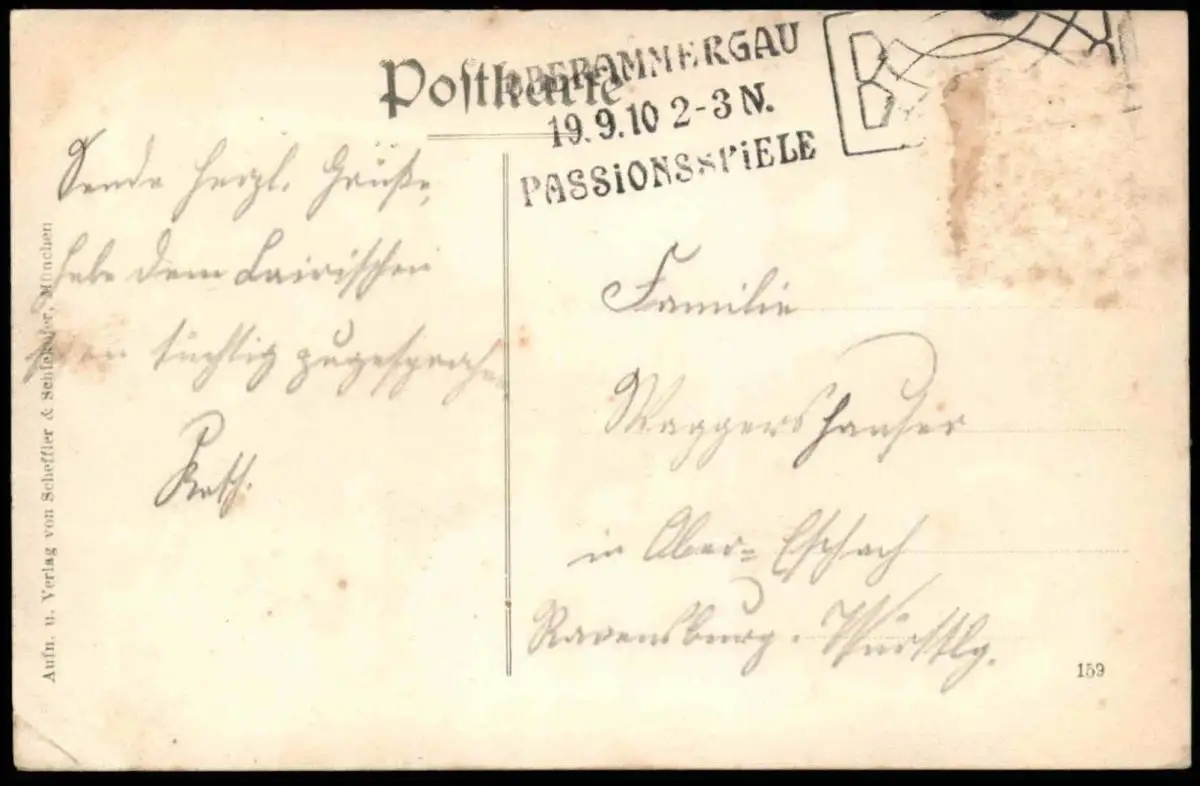 Postkarte
OBERAMMERGAU
19.9.10 2-3 N.
PASSIONSSPIELE
Sende herzl. Grüße,
habe dem bairischen
tüchtig zugesprochen
Familie
Waggershauser
in Ober-Eschach
Ravensburg. Württbg.
Aufn. u. Verlag von Scheffler & Schickhofer, München
159